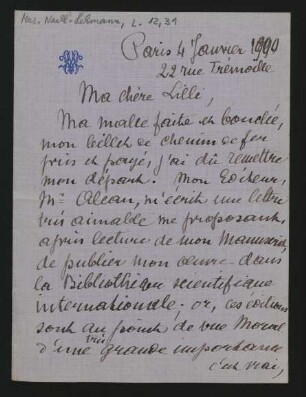 Mus. Nachl. Lehmann, L. 12,31
Paris 4 Janvier 1890
22 rue Trémoille
Ma chère Lilli,
Ma malle faite et bouclée,
mon billet de chemin de fer
pris et payé, j'ai dû remettre
mon départ. Mon Editeur,
Mr Alcan, m'écrit une lettre
très aimable me proposant,
après lecture de mon Manuscrit,
de publier mon œuvre dans
la Bibliothèque scientifique
internationale. or, ces éditions
sont au point de vue Moral
d'une très grande importance
c'est vrai,